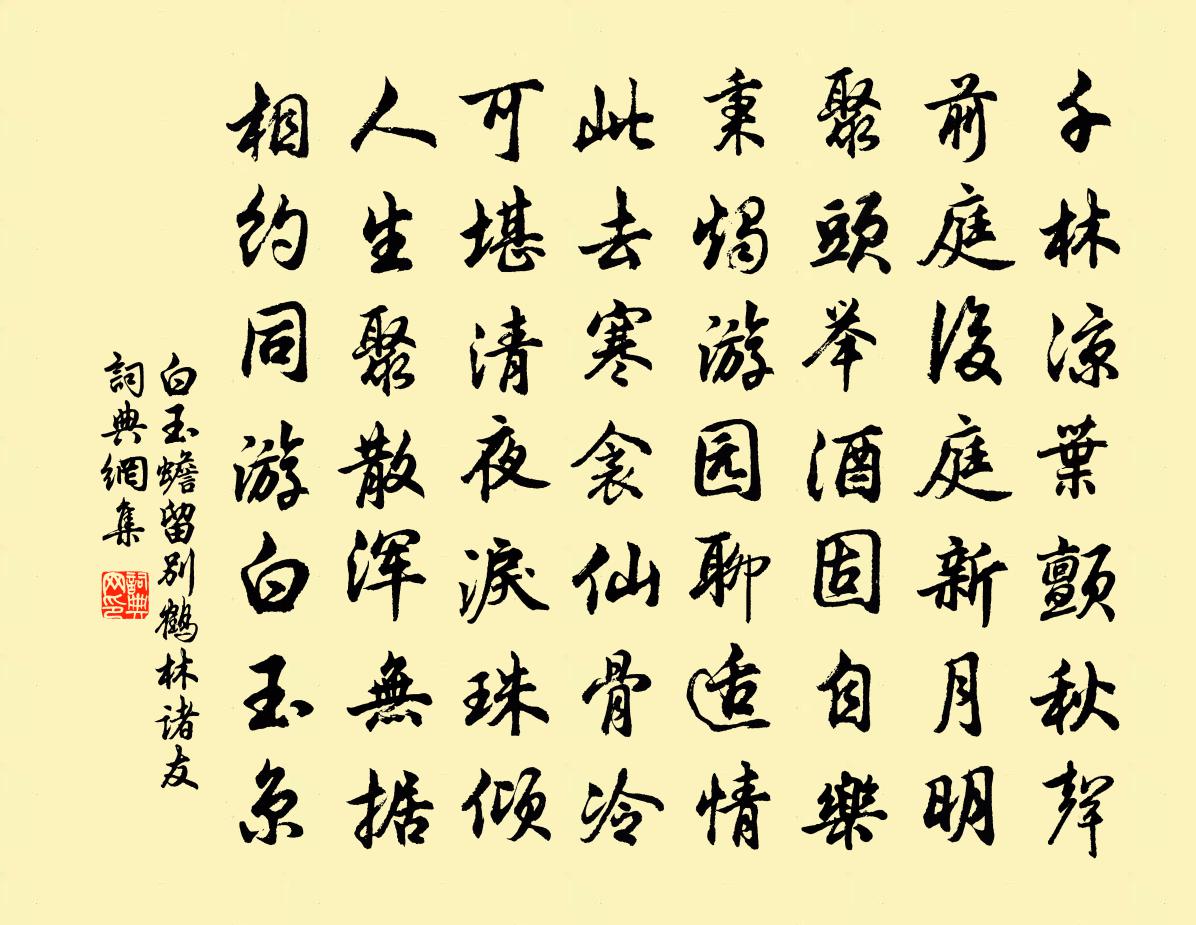 千林凉葉顫秋聲
前庭後庭新月明
聚頭举酒固自樂
秉燭游园聊适情
此去寒衾仙骨冷
可堪清夜淚珠傾
人生聚散浑無据
相约同游白玉京
白玉蟾留别鶴林诸友
詞典網集
詞典网印